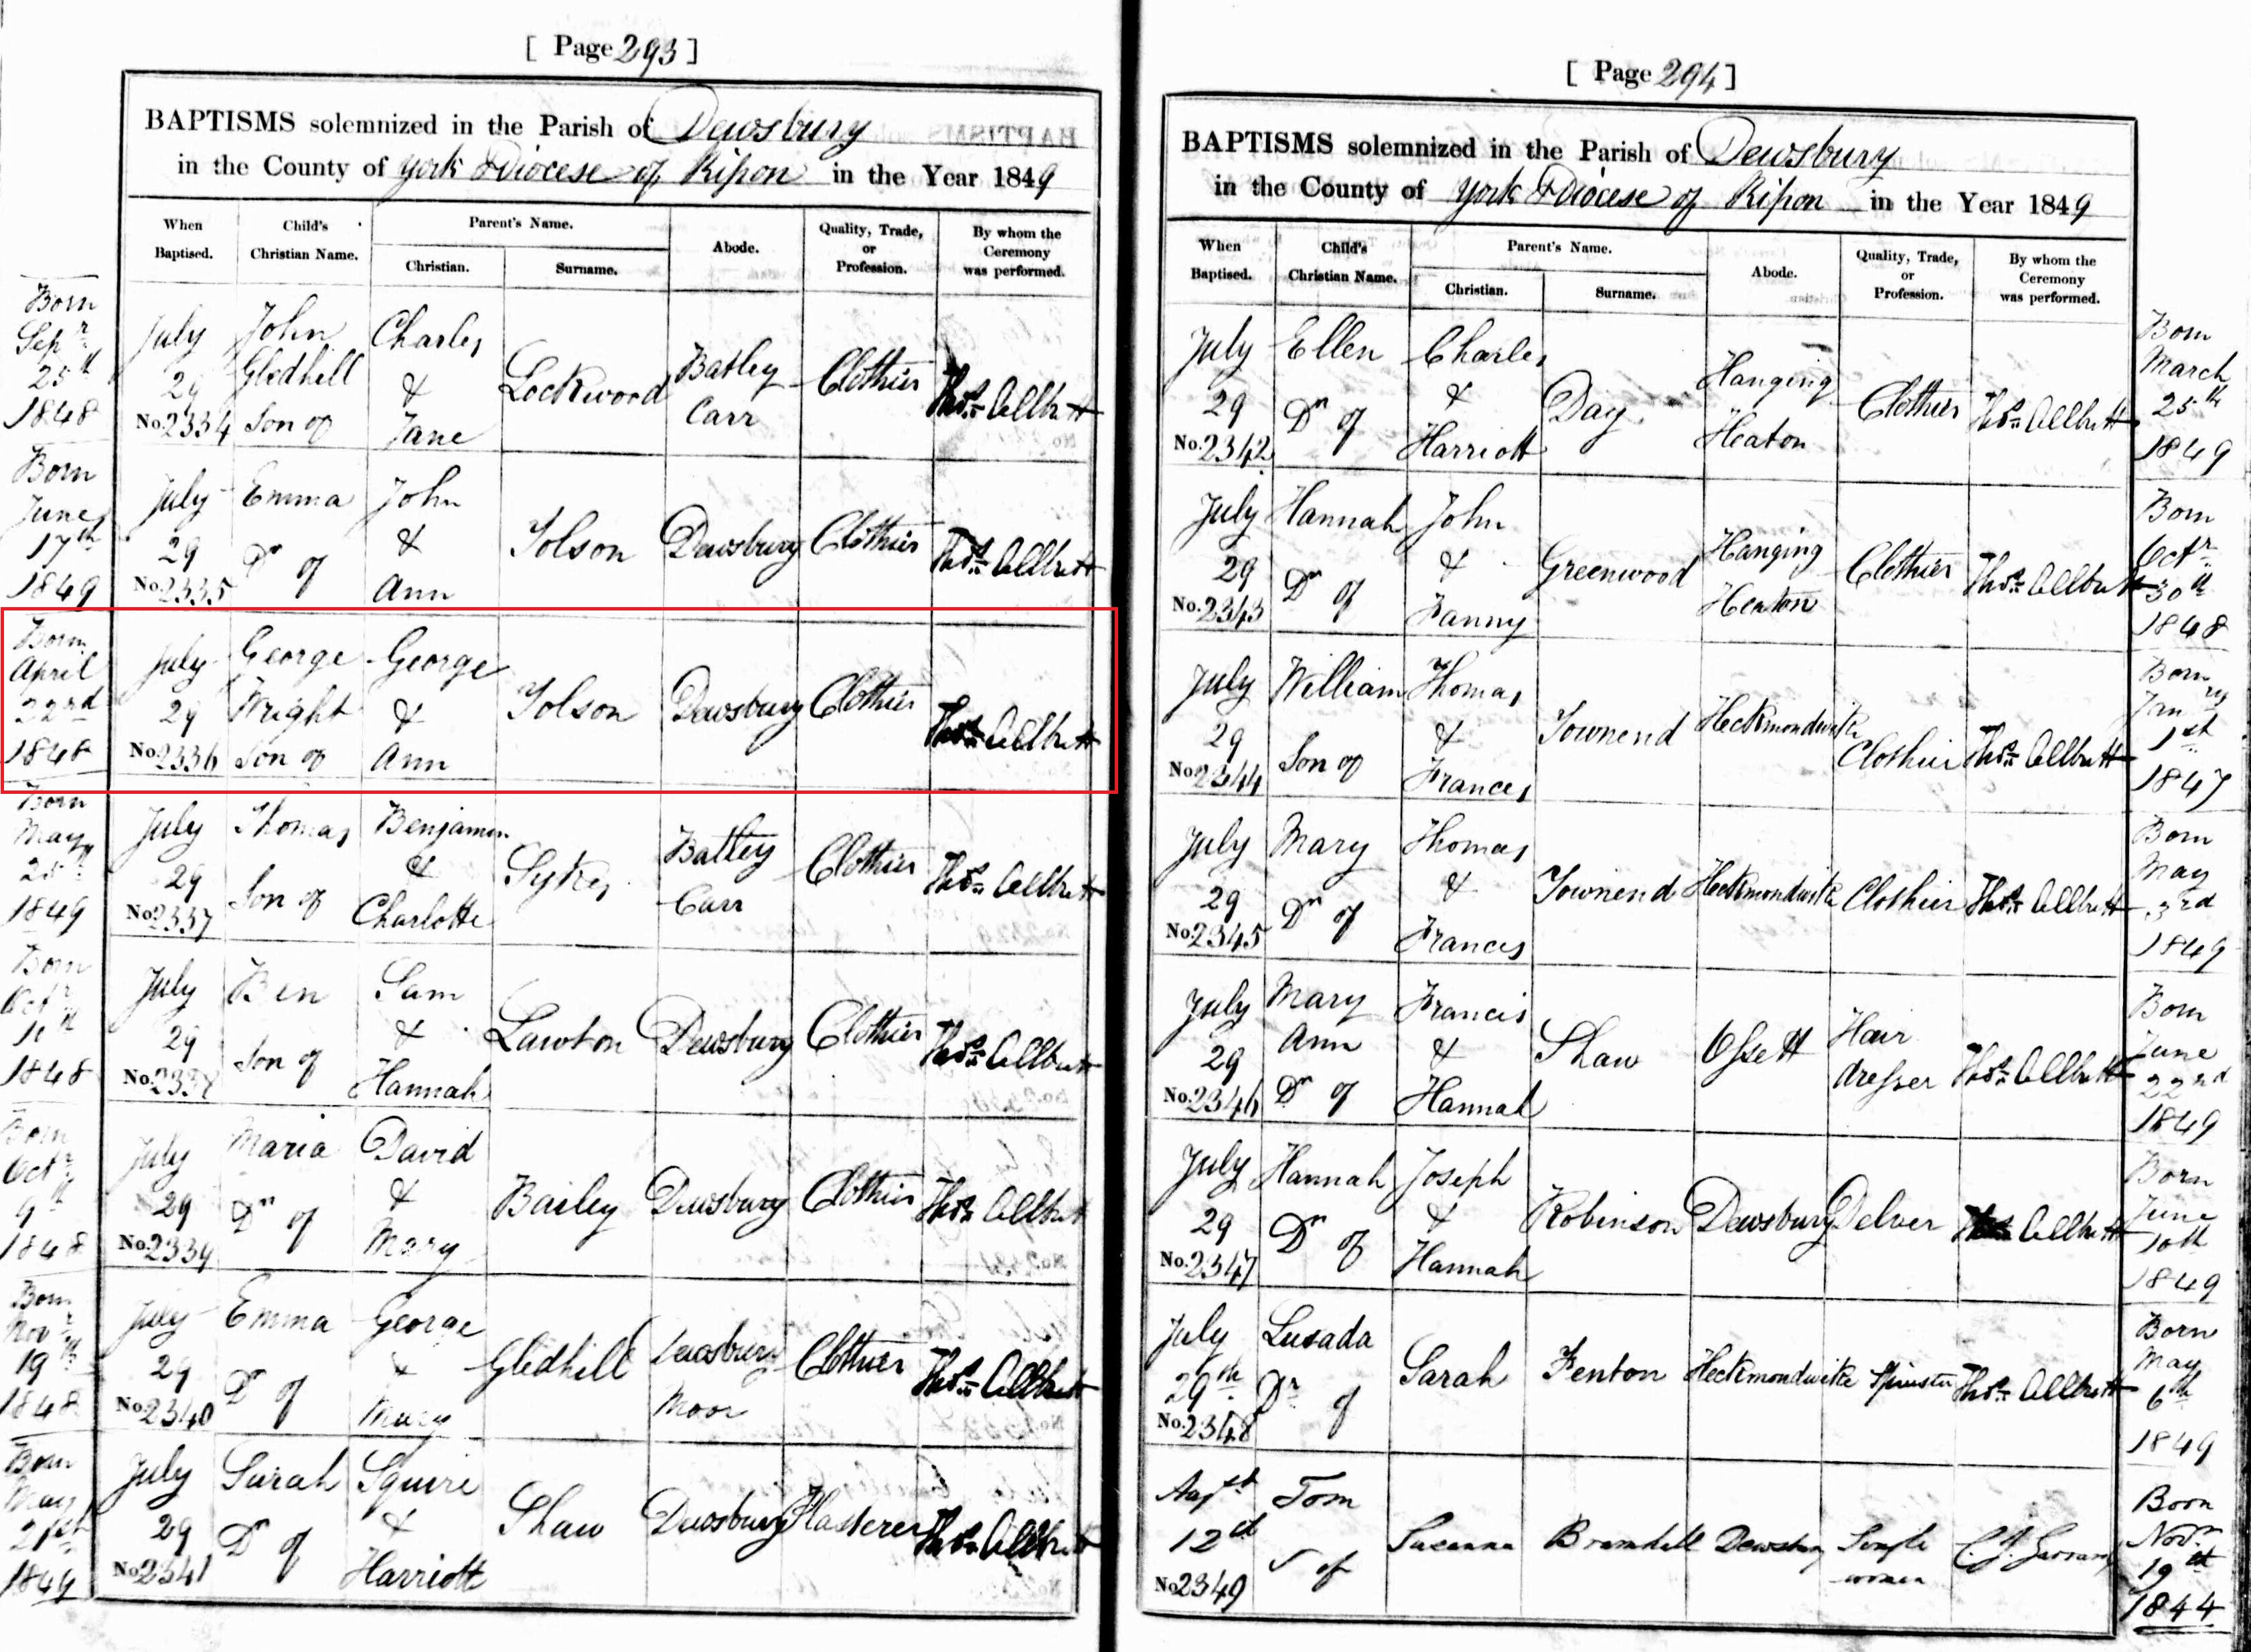 [ Page 293 ]
BAPTISMS solemnized in the Parish of Dewsbury
in the County of York Diocese of Ripon in the Year 1849
When Baptised.
Child's Christian Name.
Parent's Name.
Christian.
Surname.
Abode.
Quality, Trade, or Profession.
By whom the Ceremony was performed.
Born Sepr 25th 1848
July 29 No. 2334
John Gledhill Son of
Charles & Jane
Lockwood
Batley Carr
Clothier
Thos. Allbutt
Born June 17th 1849
July 29 No. 2335
Emma Dr of
John & Ann
Tolson
Dewsbury
Clothier
Thos. Allbutt
Born April 22rd 1848
July 29 No. 2336
George Wright Son of
George & Ann
Tolson
Dewsbury
Clothier
Thos. Allbutt
Born May 25th 1849
July 29 No. 2337
Thomas Son of
Benjamin & Charlotte
Sykes
Batley Carr
Clothier
Thos. Allbutt
Born Octr 1848
July 29 No. 2338
Ben Son of
Sam & Hannah
Lawton
Dewsbury
Clothier
Thos. Allbutt
Born Octr 9th 1848
July 29 No. 2339
Maria Dr of
David & Mary
Bailey
Dewsbury
Clothier
Thos. Allbutt
Born Novr 19th 1848
July 29 No. 2340
Emma Dr of
George & Mary
Gledhill
Dewsbury Moor
Clothier
Thos. Allbutt
Born May 21st 1849
July 29 No. 2341
Sarah Dr of
Squire & Harriott
Shaw
Dewsbury
Plasterer
Thos. Allbutt
[ Page 294 ]
BAPTISMS solemnized in the Parish of Dewsbury
in the County of York Diocese of Ripon in the Year 1849
When Baptised.
Child's Christian Name.
Parent's Name.
Christian.
Surname.
Abode.
Quality, Trade, or Profession.
By whom the Ceremony was performed.
July 29 No. 2342
Ellen Dr of
Charles & Harriott
Day
Hanging Heaton
Clothier
Thos. Allbutt
Born March 25th 1849
July 29 No. 2343
Hannah Dr of
John & Fanny
Greenwood
Hanging Heaton
Clothier
Thos. Allbutt
Born Octr 30th 1848
July 29 No. 2344
William Son of
Thomas & Frances
Townend
Heckmondwike
Clothier
Thos. Allbutt
Born Janry 1st 1847
July 29 No. 2345
Mary Dr of
Thomas & Frances
Townend
Heckmondwike
Clothier
Thos. Allbutt
Born May 3rd 1849
July 29 No. 2346
Mary Ann Dr of
Francis & Hannah
Shaw
Ossett
Hair dresser
Thos. Allbutt
Born June 22nd 1849
July 29 No. 2347
Hannah Dr of
Joseph & Hannah
Robinson
Dewsbury
Delver
Thos. Allbutt
Born June 10th 1849
July 29th No. 2348
Lusada Dr of
Sarah
Fenton
Heckmondwike
Spinster
Thos. Allbutt
Born May 6th 1849
Augst 12th No. 2349
Tom S of
Susanna
Bramhall
Dewsbury
Single woman
Born Novr 19th 1844